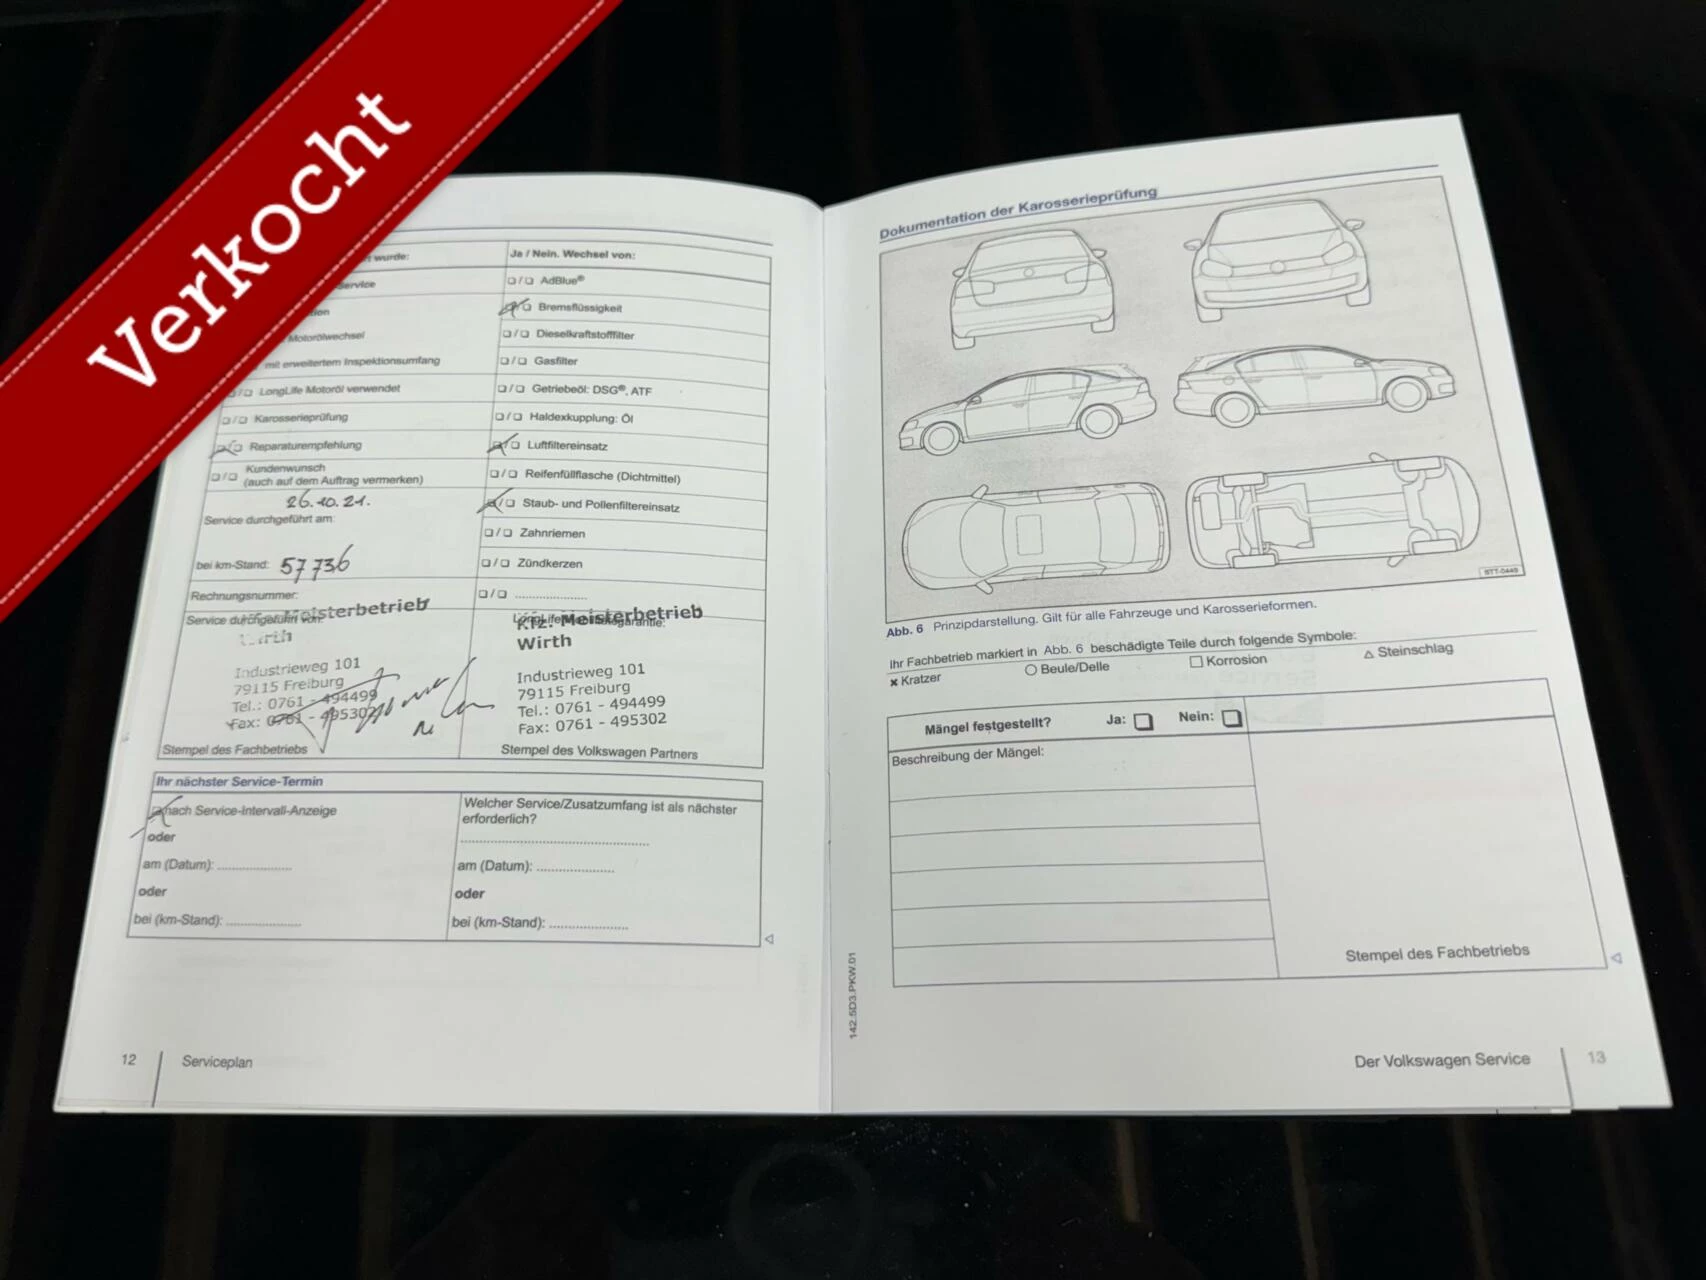 Verkocht
wurde:
Service
Motorölwechsel
mit erweitertem Inspektionsumfang
❏/❏ LongLife Motoröl verwendet
❏/❏ Karosserieprüfung
❏/❏ Reparaturempfehlung
❏/❏ Kundenwunsch
(auch auf dem Auftrag vermerken)
26.10.21.
Service durchgeführt am:
bei km-Stand: 57736
Rechnungsnummer:
Service durchgeführt von:
Meisterbetrieb
Wirth
Industrieweg 101
79115 Freiburg
Tel.: 0761 - 494499
Fax: 0761 - 495302
Stempel des Fachbetriebs
Ja / Nein. Wechsel von:
❏/❏ AdBlue®
❏/❏ Bremsflüssigkeit
❏/❏ Dieselkraftstofffilter
❏/❏ Gasfilter
❏/❏ Getriebeöl: DSG®, ATF
❏/❏ Haldexkupplung: Öl
❏/❏ Luftfiltereinsatz
❏/❏ Reifenfüllflasche (Dichtmittel)
❏/❏ Staub- und Pollenfiltereinsatz
❏/❏ Zahnriemen
❏/❏ Zündkerzen
❏/❏ ....................
Kfz. Meisterbetrieb
Wirth
Industrieweg 101
79115 Freiburg
Tel.: 0761 - 494499
Fax: 0761 - 495302
Stempel des Volkswagen Partners
Ihr nächster Service-Termin
nach Service-Intervall-Anzeige
oder
am (Datum): ....................
oder
bei (km-Stand): ....................
Welcher Service/Zusatzumfang ist als nächster
erforderlich?
..................................................
am (Datum): ....................
oder
bei (km-Stand): ....................
12 Serviceplan
Dokumentation der Karosserieprüfung
BTT-0449
Abb. 6 Prinzipdarstellung. Gilt für alle Fahrzeuge und Karosserieformen.
Ihr Fachbetrieb markiert in Abb. 6 beschädigte Teile durch folgende Symbole:
✖ Kratzer ○ Beule/Delle □ Korrosion △ Steinschlag
Mängel festgestellt? Ja: ❏ Nein: ❏
Beschreibung der Mängel:
Stempel des Fachbetriebs
142.5D3.PKW.01
Der Volkswagen Service 13